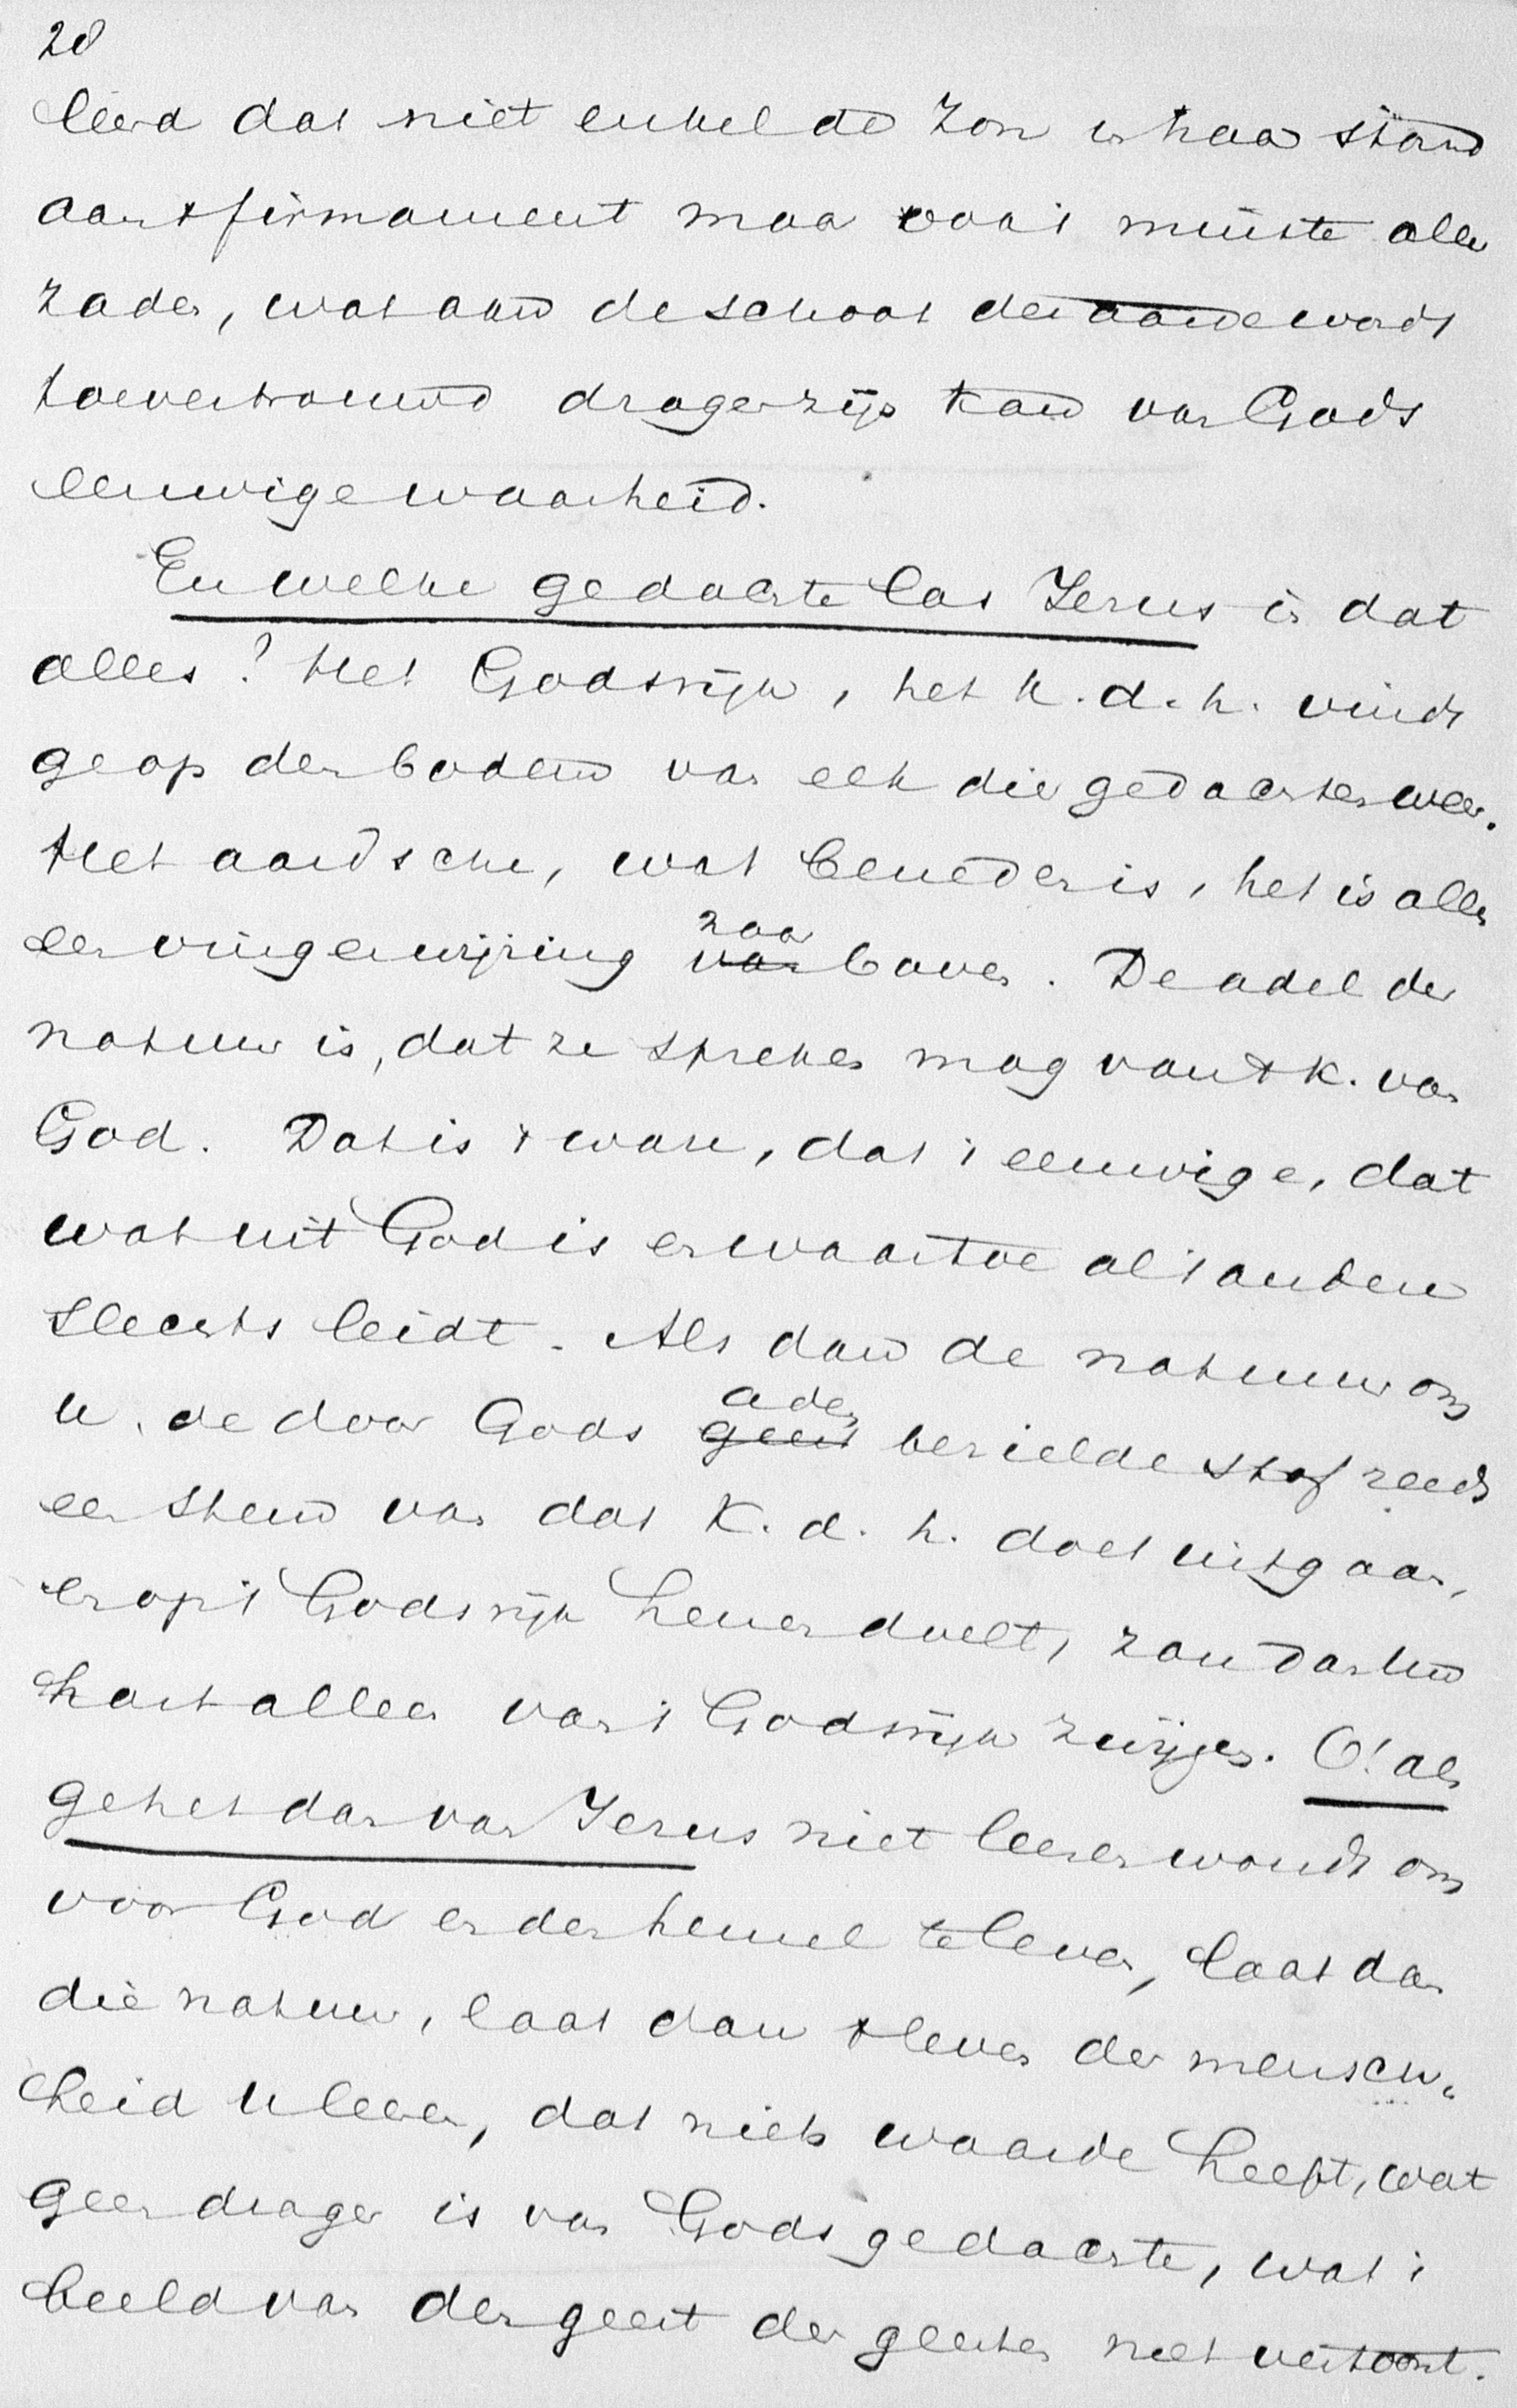 28
leerd dat niet enkel de zon in haar stand
aan 't firmament maar ook 't minste aller
zaden, wat aan de schoot der aarde wordt
toevertrouwd drager zijn kan van Gods
eeuwige waarheid.
En welke gedachte las Jezus in dat
alles? Het Godsrijk, het k. d. h. vindt
ge op den bodem van elk dier gedachten weer.
Het aardsche, wat beneden is, het is alles
een vingerwijzing van naar boven. De adel der
natuur is, dat ze spreken mag van 't k. van
God. Dat is 't ware, dat 't eeuwige, dat
wat uit God is en waartoe al 't andere
slechts leidt. Als dan de natuur om
u, de door Gods geest adem bezielde stof reeds
een stem van dat K. d. h. doet uitgaan,
en op 't Godsrijk henen doelt, zou dan uw
hart alleen van 't Godsrijk zwijgen. O! als
ge het dan van Jezus niet leeren woudt om
voor God en den hemel te leven, laat dan
die natuur, laat dan 't leven der mensch„
heid u leeren, dat niets waarde heeft, wat
geen drager is van Gods gedachte, wat 't
beeld van den geest der geesten niet vertoont.